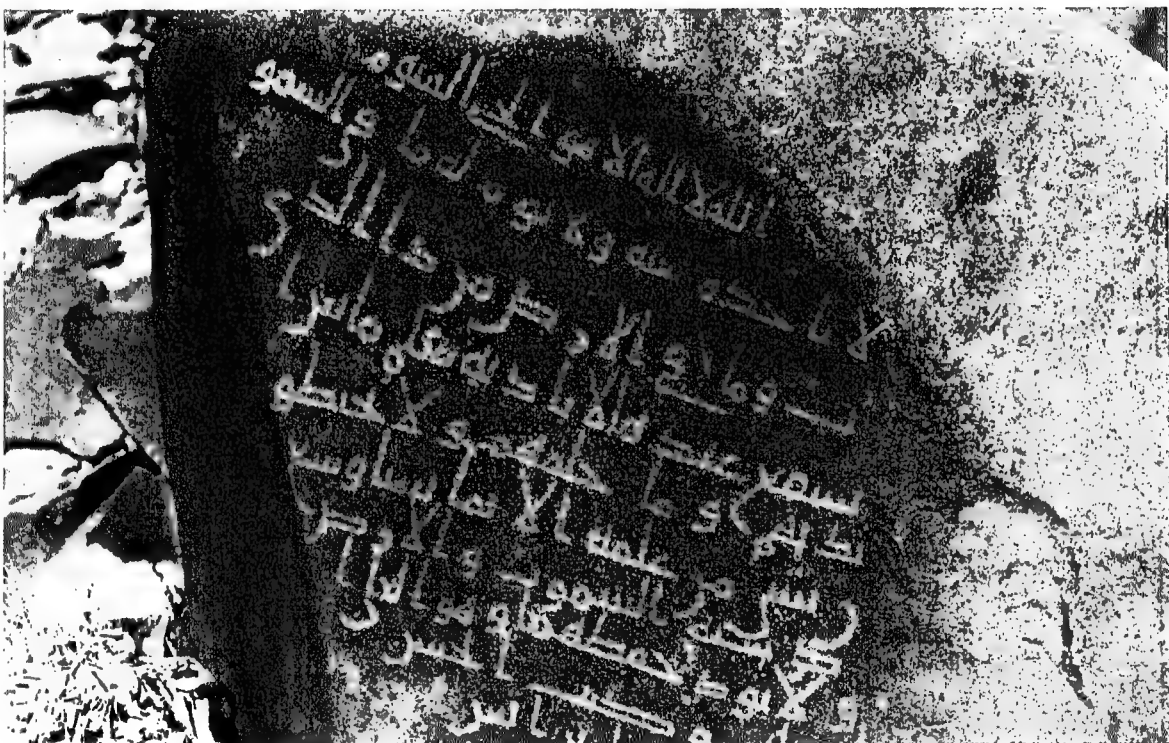 الله لا اله الا هو الحي القيوم
لا تاخذه سنة ولا نوم له ما في السمو
ت وما في الارض من ذا الذي
يشفع عنده الا باذنه يعلم ما بين ا
يديهم وما خلفهم ولا يحيطو
ن بشي من علمه الا بما شا وسع
كرسيه السموت والارض
و لا يوده حفظهما وهو العلي